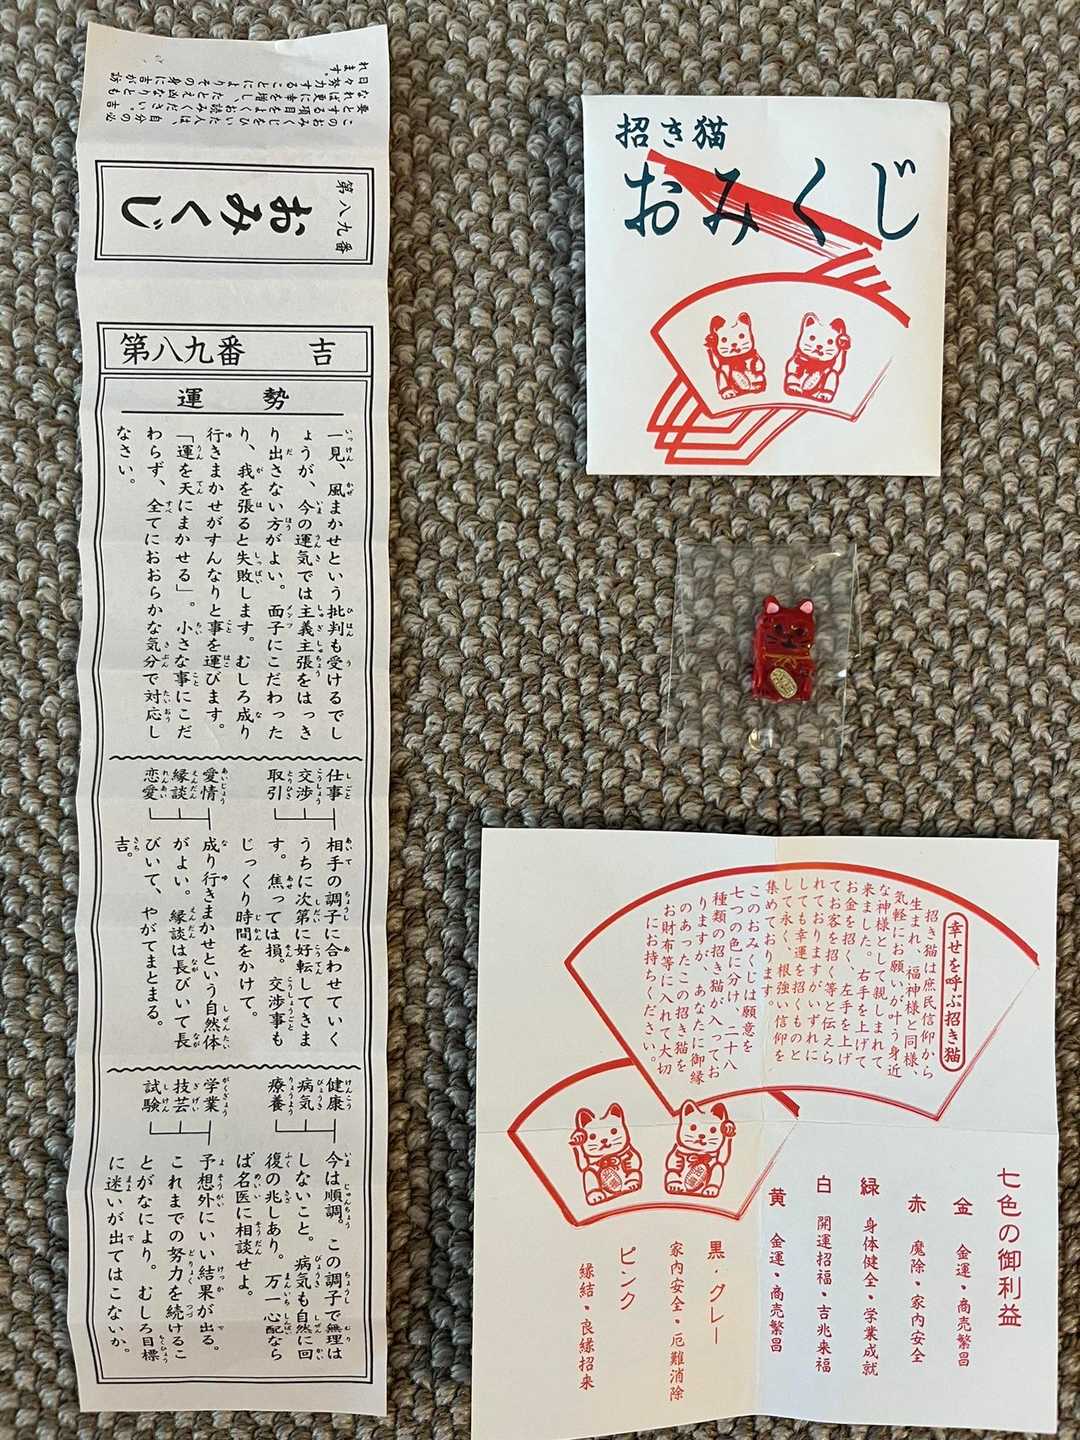 このおみくじをひいた人は、自分の必
要とする項目をよくお読みください。吉
なれば更に幸を増し、たとえ凶なりとも
日々努力することによりその身に吉が訪
れます。
第八九番
おみくじ
第八九番 吉
運勢
一見、風まかせという批判も受けるでし
ょうが、今の運気では主義主張をはっき
り出さない方がよい。面子にこだわった
り、我を張ると失敗します。むしろ成り
行きまかせがすんなりと事を運びます。
「運を天にまかせる」。小さな事にこだ
わらず、全ておおらかな気分で対応し
なさい。
仕事
交渉
取引
相手の調子に合わせていく
うちに次第に好転してきま
す。焦っては損。交渉事も
じっくり時間をかけて。
愛情
縁談
恋愛
成り行きまかせという自然体
がよい。縁談は長びいて長
びいて、やがてまとまる。
吉。
健康
病気
療養
今は順調。この調子で無理は
しないこと。病気も自然に回
復の兆しあり。万一心配なら
ば名医に相談せよ。
学業
技芸
試験
予想外にいい結果が出る。
これまでの努力を続けるこ
とがなにより。むしろ目標
に迷いが出てはこないか。
招き猫
おみくじ
幸せを呼ぶ招き猫
招き猫は庶民信仰から
生まれ、福神様と同様、
気軽にお願いが叶う身近
な神様として親しまれて
来ました。右手を上げて
お金を招く、左手を上げ
てお客を招く等と伝えら
れておりますがいずれに
しても幸運を招くものと
して永く、根強い信仰を
集めております。
このおみくじは願意を
七つの色に分け、二十八
種類の招き猫が入ってお
りますが、あなたに御縁
のあったこの招き猫を
お財布等に入れて大切
にお持ちください。
七色の御利益
金 金運・商売繁昌
赤 魔除・家内安全
緑 身体健全・学業成就
白 開運招福・吉兆来福
黄 金運・商売繁昌
黒・グレー
家内安全・厄難消除
ピンク
縁結・良縁招来